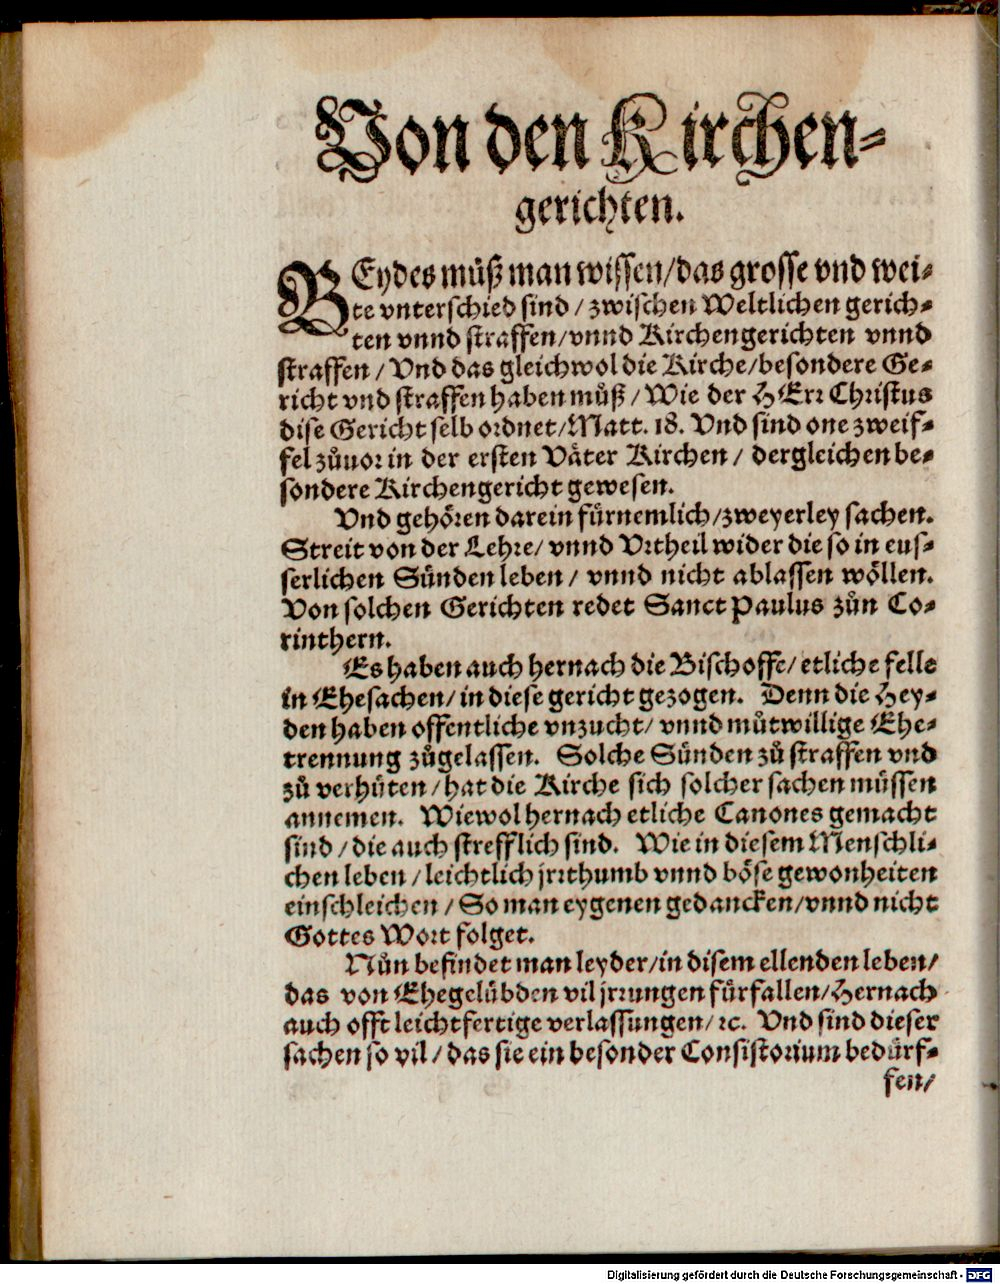 Von den Kirchen-
gerichten.
BEydes můß man wissen/das grosse vnd wei-
te vnterschied sind / zwischen Weltlichen gerich-
ten vnnd straffen/vnnd Kirchengerichten vnnd
straffen / Vnd das gleichwol die Kirche/besondere Ge-
richt vnd straffen haben můß / Wie der HErr Christus
dise Gericht selb ordnet/Matt. 18. Vnd sind one zweif-
fel zůuor in der ersten Väter Kirchen / dergleichen be-
sondere Kirchengericht gewesen.
Vnd gehören darein fürnemlich/zweyerley sachen.
Streit von der Lehre/ vnnd Vrtheil wider die so in eus-
serlichen Sünden leben / vnnd nicht ablassen wöllen.
Von solchen Gerichten redet Sanct Paulus zůn Co-
rinthern.
Es haben auch hernach die Bischoffe/ etliche felle
in Ehesachen/ in diese gericht gezogen. Denn die Hey-
den haben offentliche vnzucht/ vnnd můtwillige Ehe-
trennung zůgelassen. Solche Sünden zů straffen vnd
zů verhüten / hat die Kirche sich solcher sachen müssen
annemen. Wiewol hernach etliche Canones gemacht
sind / die auch strefflich sind. Wie in diesem Menschli-
chen leben / leichtlich jrrthumb vnnd böse gewonheiten
einschleichen / So man eygenen gedancken/vnnd nicht
Gottes Wort folget.
Nůn befindet man leyder/in disem ellenden leben/
das von Ehegelübden vil jrrungen fürfallen/Hernach
auch offt leichtfertige verlassungen/ ꝛc. Vnd sind dieser
sachen so vil / das sie ein besonder Consistorium bedürf-
fen/
Digitalisierung gefördert durch die Deutsche Forschungsgemeinschaft - DFG